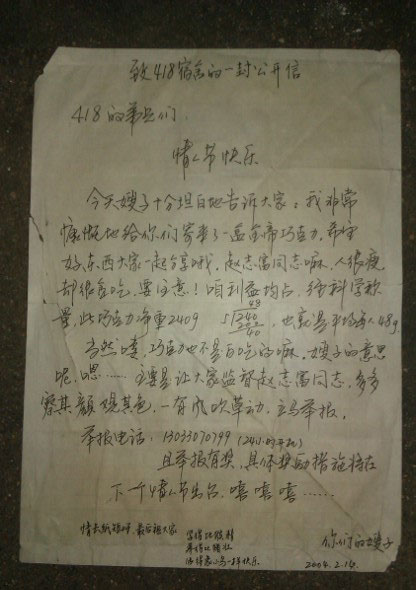 致418宿舍的一封公开信
418的弟兄们,
情人节快乐
今天嫂子十分坦白地告诉大家:我非常
慷慨地给你们寄来了一盒金帝巧克力,希望
好东西大家一起分享哦,赵志富同志嘛,人很瘦,
却很贪吃,要注意!咱利益均占,经科学称
量,此巧克力净重240g
48
5√240
20
40
,也就是平均每人48g
当然喽,巧克力也不是白吃的嘛,嫂子的意思
呢,嗯……主要是让大家监督赵志富同志,多多
察其颜观其色,一有风吹草动,立马举报。
举报电话:13033070799(24小时开机)
且举报有奖,具体奖励措施将在
下一个情人节出台,嘻嘻嘻……
情长纸短,最后祝大家
一样快乐
你们的嫂子
2004.2.14